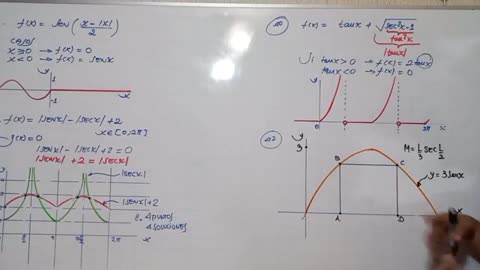 f(x) = sen(x-|x|/2)
casos
x≥0 → f(x) = 0
x<0 → f(x) = senx
y
1
-1
x
f(x) = |senx| - |secx| + 2
x∈[0,2π]
f(x) = 0
|senx| - |secx| + 2 = 0
|senx| + 2 = |secx|
y
|secx|
|senx|+2
∴ 4 puntos
4 soluciones
π/2 π 3π/2 2π x
f(x) = tanx + √sec²x-1
tan²x
|tanx|
Si tanx>0 → f(x) = 2tanx
tanx<0 → f(x) = 0
y
0 2π x
y
3
M = 1/3 sec 1/2
B C
y = 3senx
A D
x